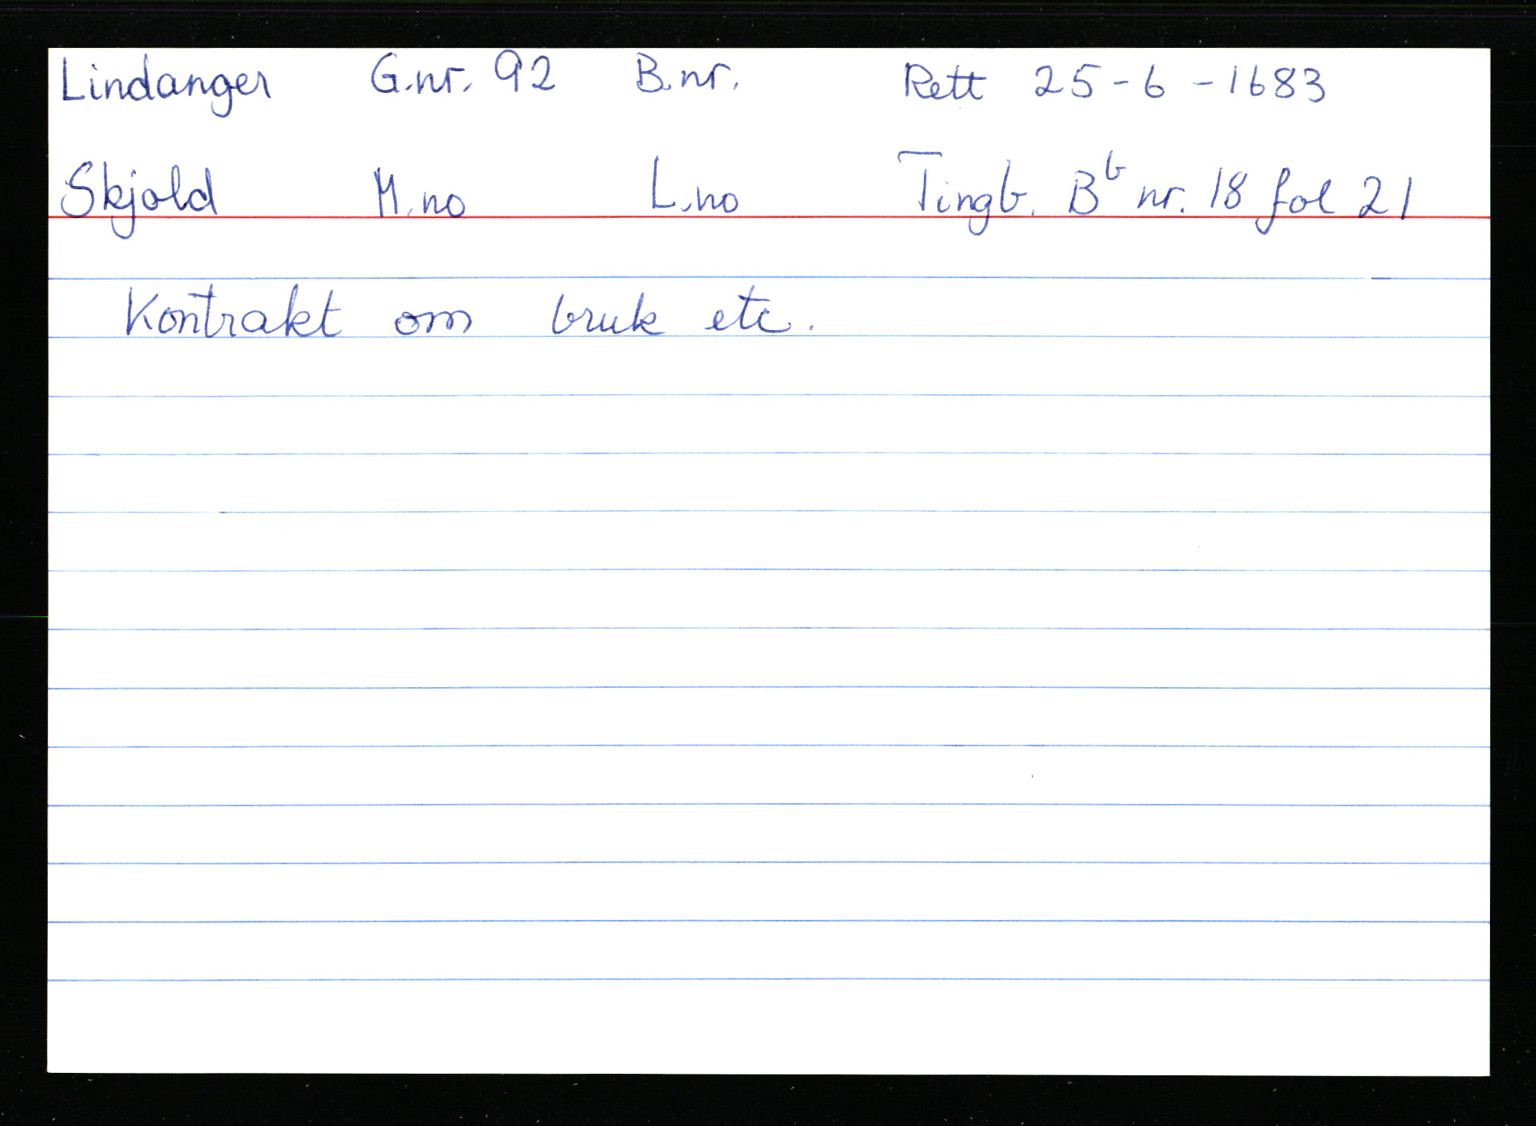 Lindanger G.nr. 92 B.nr. Rett 25-6-1683
Skjold M.no L.no Tingb. Bb nr. 18 fol 21
Kontrakt om bruk etc.